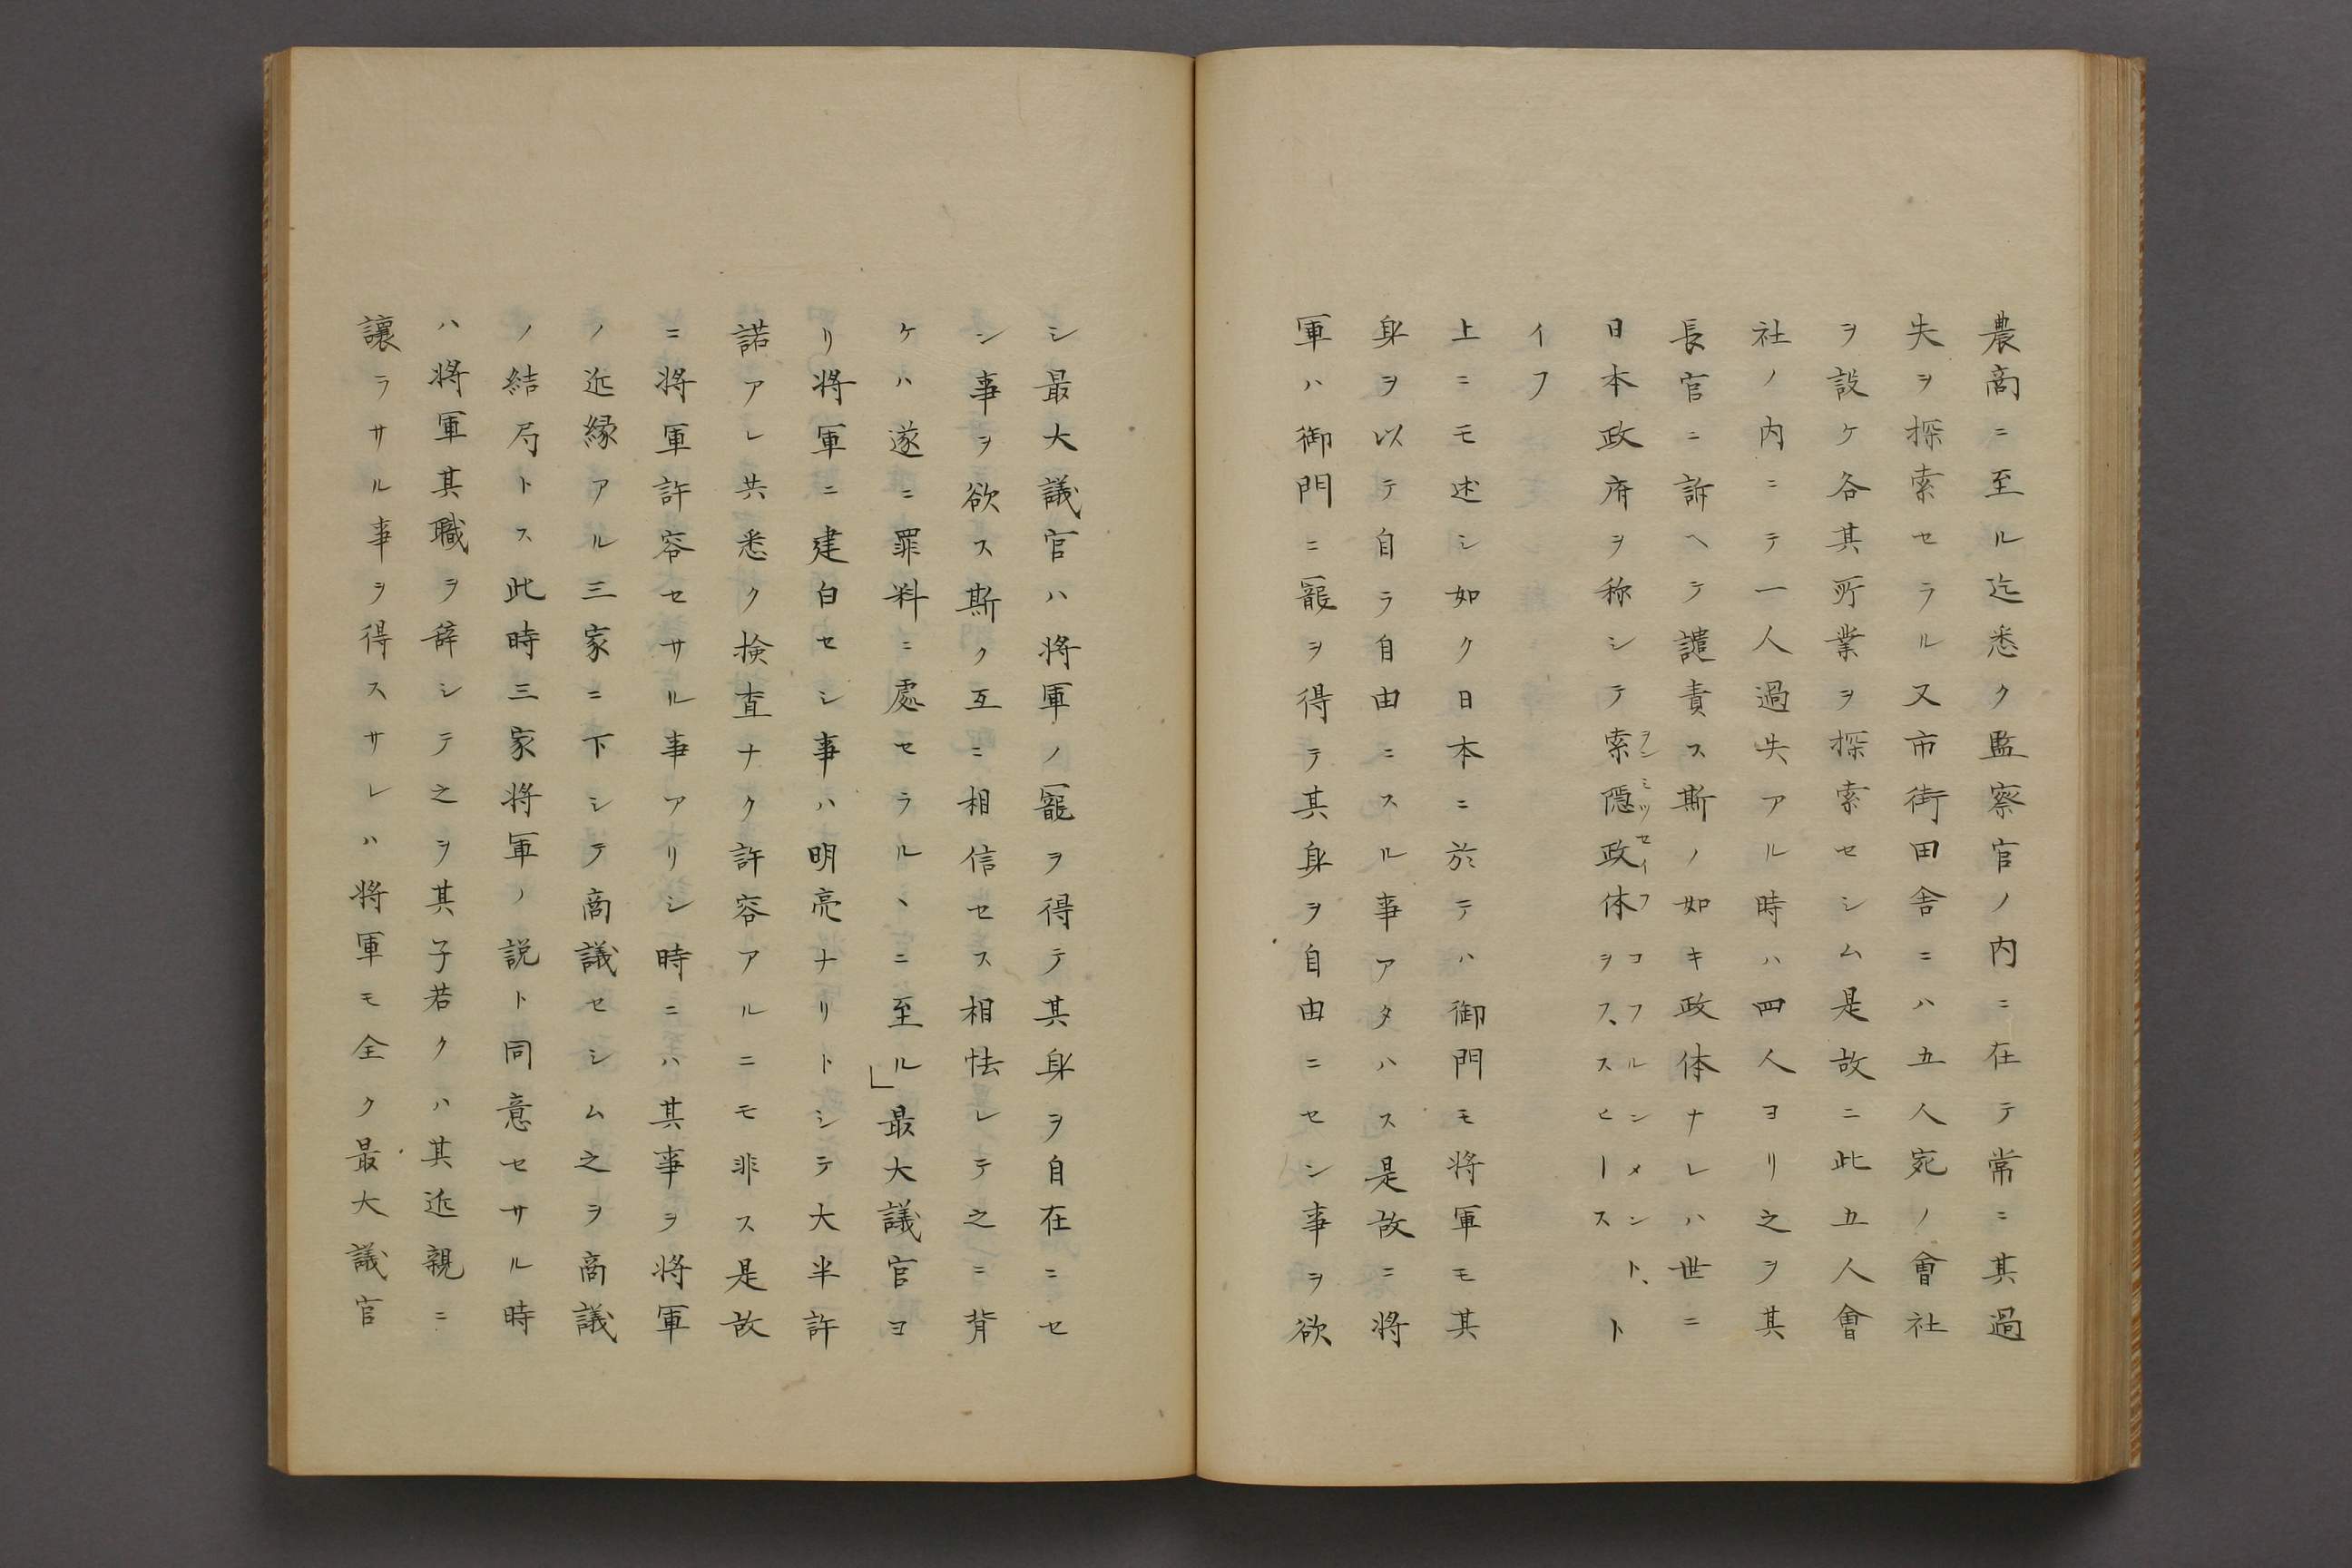 農商ニ至ル迄悉ク監察官ノ内ニ在テ常ニ其過
失ヲ探索セラル又市街田舎ニハ五人宛ノ會社
ヲ設ケ各其所業ヲ探索セシム是故ニ此五人會
社ノ内ニテ一人過失アル時ハ四人ヨリ之ヲ其
長官ニ訴ヘテ譴責ス斯ノ如キ政体ナレハ世ニ
ヲンミツセイフ コフルンメント、
日本政府ヲ称シテ索隠政体ヲフ、スヒースト
イフ
上ニモ述シ如ク日本ニ於テハ御門モ将軍モ其
身ヲ以テ自ラ自由ニスル事アタハス是故ニ将
軍ハ御門ニ寵ヲ得テ其身ヲ自由ニセン事ヲ欲
シ最大議官ハ将軍ノ寵ヲ得テ其身ヲ自在ニセ
ン事ヲ欲ス斯ク互ニ相信セス相怯レテ之ニ背
ケハ遂ニ罪料ニ處セラルヽニ至ル」最大議官ヨ
リ将軍ニ建白セシ事ハ明亮ナリトシテ大半許
諾アレ共悉ク検査ナク許容アルニモ非ス是故
ニ将軍許容セサル事アリシ時ニハ其事ヲ将軍
ノ近縁アル三家ニ下シテ商議セシム之ヲ商議
ノ結局トス此時三家将軍ノ説ト同意セサル時
ハ将軍其職ヲ辞シテ之ヲ其子若クハ其近親ニ
讓ラサル事ヲ得スサレハ将軍モ全ク最大議官